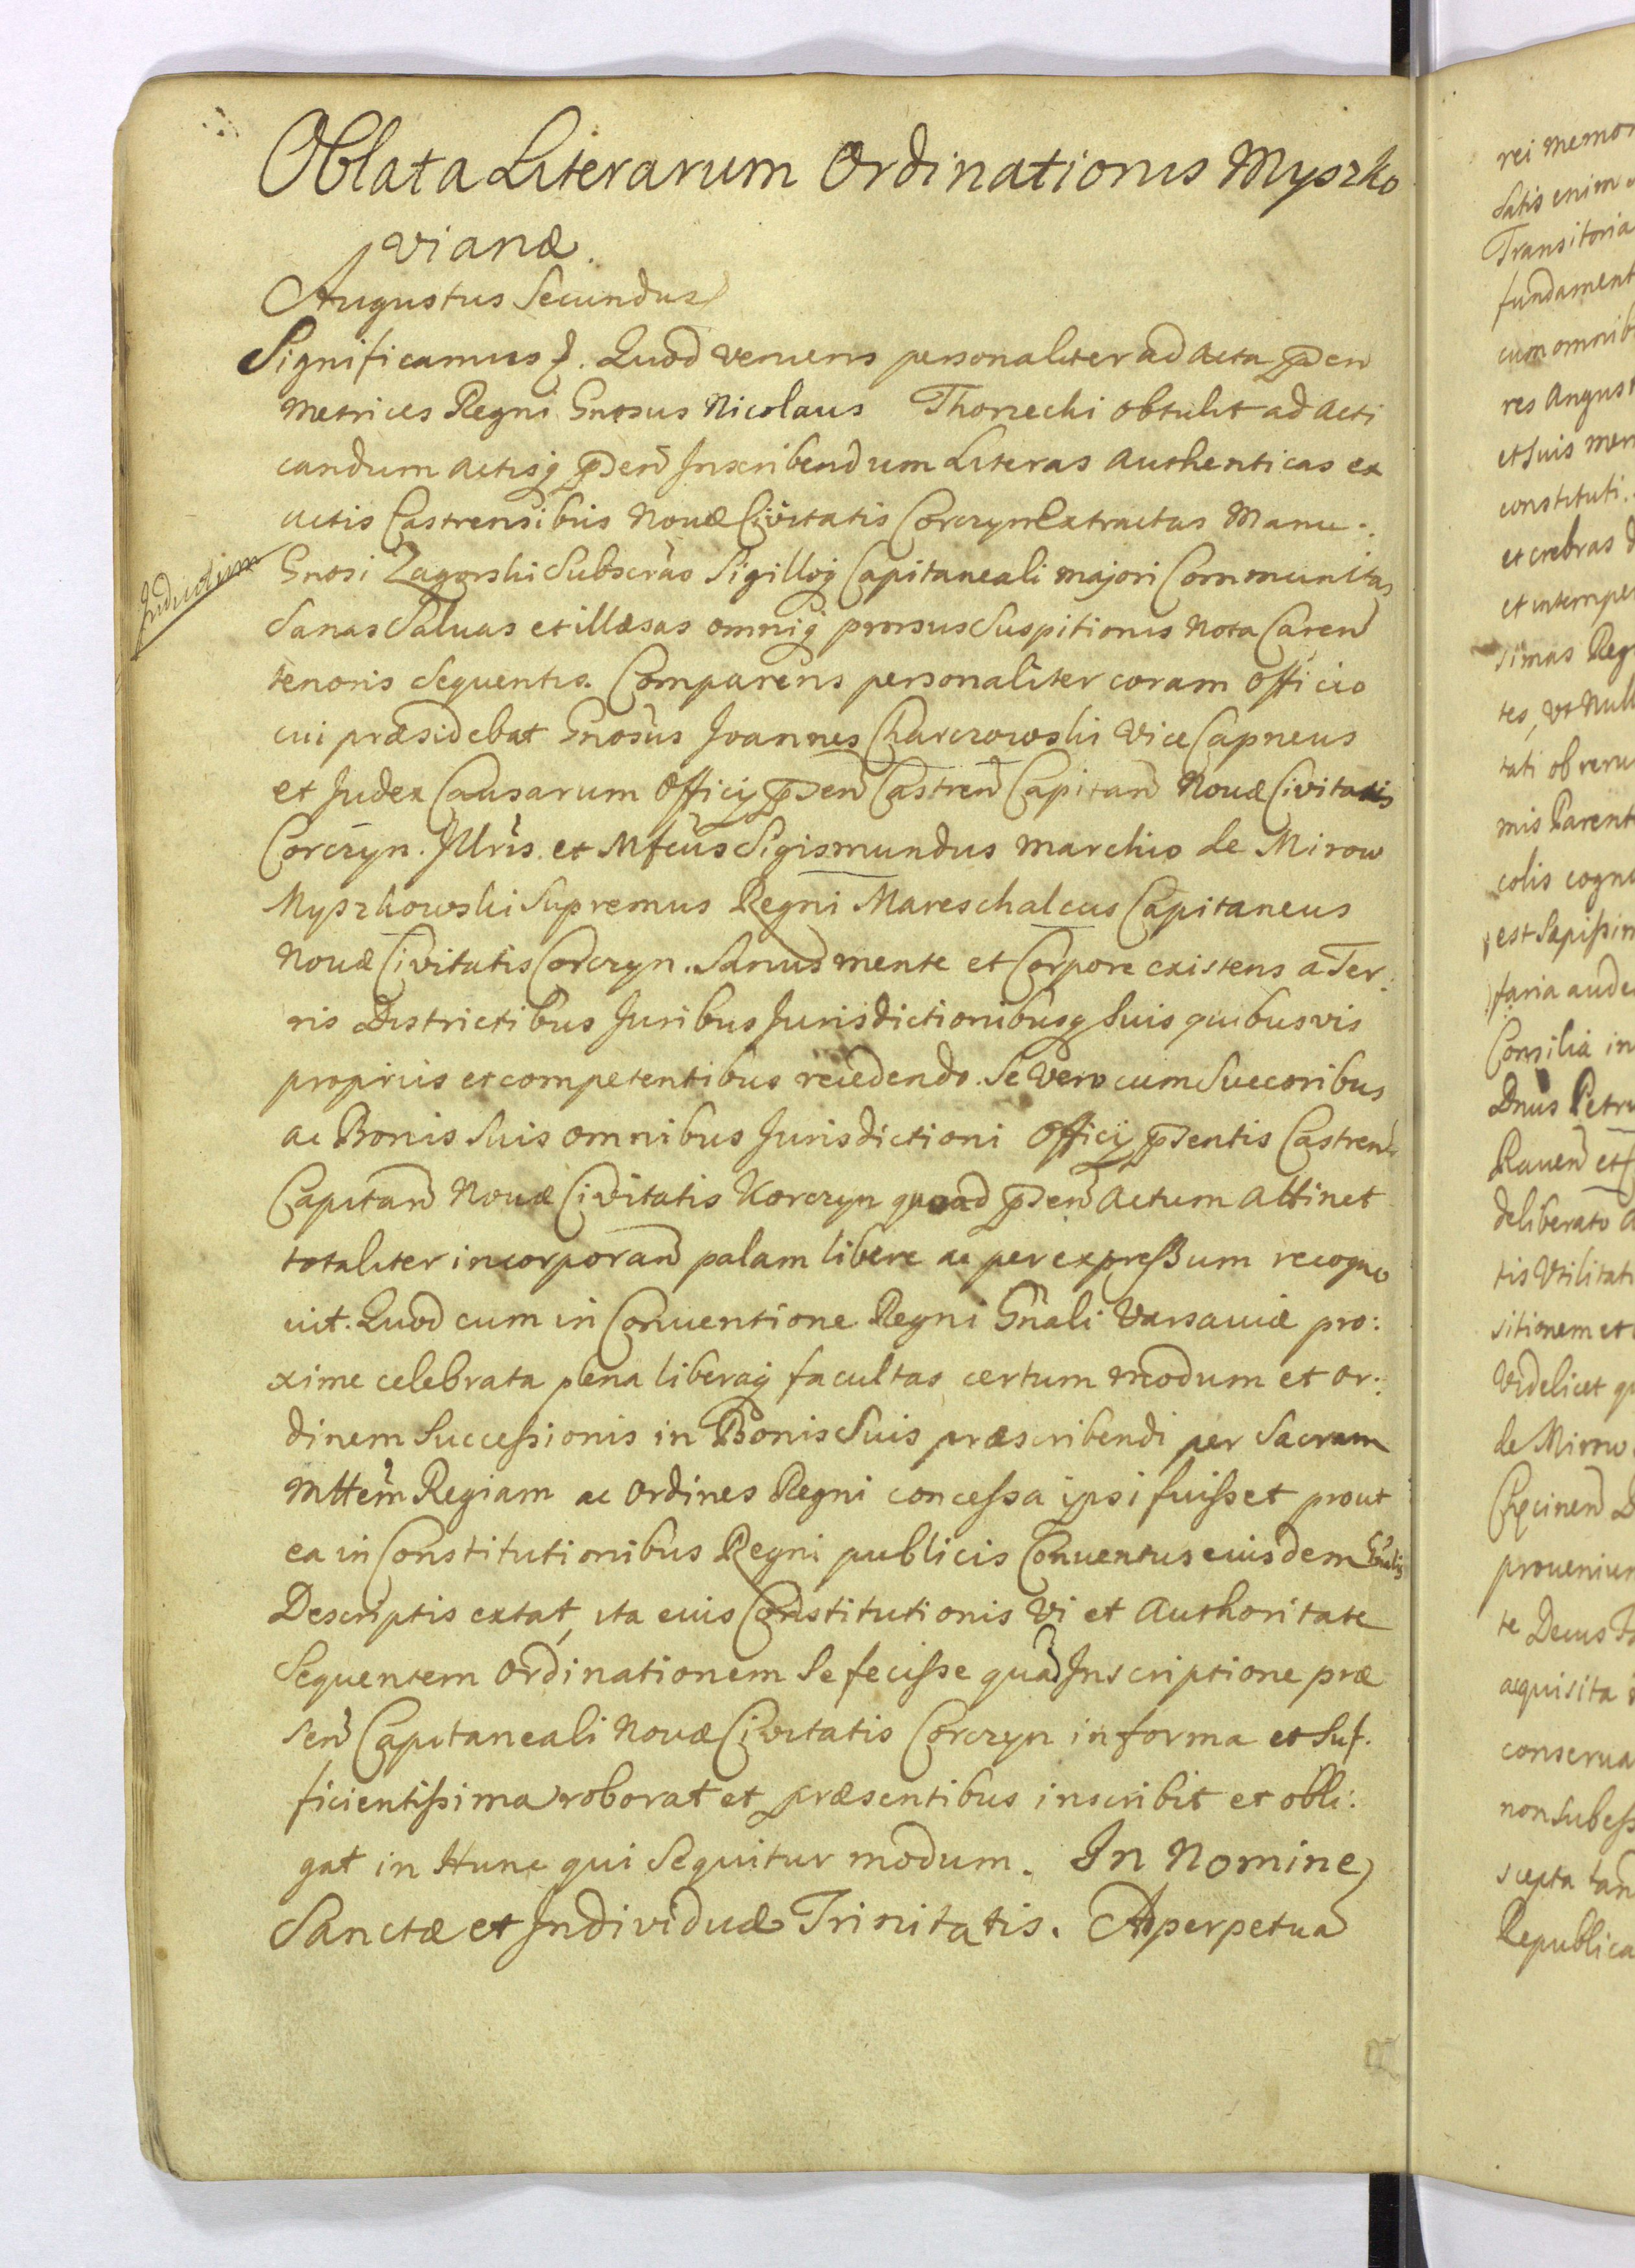 Oblata Literarum Ordinationis Myszko
vianæ.
Augustus Secundus
Significamus &. Quod veniens personaliter ad Acta p̃sen
Metrices Regni Gnosus Nicolaus Thorzecki obtulit ad Acti
candum Actisq̃ p̃sen̄ Inscribendum Literas Authenticas ex
Actis Castrensibus Nouæ Ciuitatis Corczyn Extractas Manu.
Gnosi Zagorski Subscr̃as Sigilloq̃ Capitaneali majori Communitas
Inductum
Sanas Saluas et illæsas omniq̃ prorsus Suspitionis Nota Caren̄
tenoris Sequentis. Comparens personaliter coram Officio
cui præsidebat Gnosus Joannes Charczowski Vice Capneus
et Judex Causarum Officij p̃sen̄ Castren̄ Capitan̄ Nouæ Civitatis
Corczyn. Jllr̃is. et Mfcus Sigismundus Marchio de Mirow
Myszkowski Supremus Regni Mareschalcus Capitaneus
Nouæ Civitatis Corczyn. Sanus mente et Corpore existens a Ter:
ris Districtibus Juribus Jurisdictionibusq̃ Suis quibusvis
proprijs et competentibus recedendo. Se Vero cum Succoribus
ac Bonis Suis omnibus Jurisdictioni Officij p̃sentis Castren̄
Capitan̄ Nouæ Civitatis Korczyn quoad p̃sen̄ Actum Attinet
totaliter incorporan̄ palam libere ac per expressum recogno
uit. Quod cum in Conuentione Regni Gñali Varsauiæ pro:
xime celebrata plena liberaq̃ facultas certum modum et or:
dinem Successionis in Bonis Suis præscribendi per Sacram
Mttem̃ Regiam ac Ordines Regni concessa ipsi fuisset prout
ea in Constitutionibus Regni publicis Conuentus eiusdem Gñalis
Descriptis extat, ita eius Constitutionis Vi et Authoritate
Sequentem Ordinationem Se fecisse quam̄ Inscriptione præ
sen̄ Capitaneali Nouæ Civitatis Corczyn in forma et Suf.
ficientissima roborat et præsentibus inscribit et obli:
gat in Hunc qui Sequitur modum. In Nomine
Sanctæ et Individuæ Trinitatis. Ad perpetua
rei memor
Satis enim
Transitoria
fundament
cum omnib
res August
et Suis mem
constituti.
et crebras
et intempe
simas Reg
tes, Vt Null
tati ob reru
mis Parent
colis cogn
est Sapissim
faria aude
Consilia in
Dnus Petru
Rauen̄ et
deliberato
tis Vtilitati
sitionem et
Videlicet
de Mirow
Chęcinen̄
prouenien
te Decus
acquisita
conserua
non Subess
scepta tan
Republica